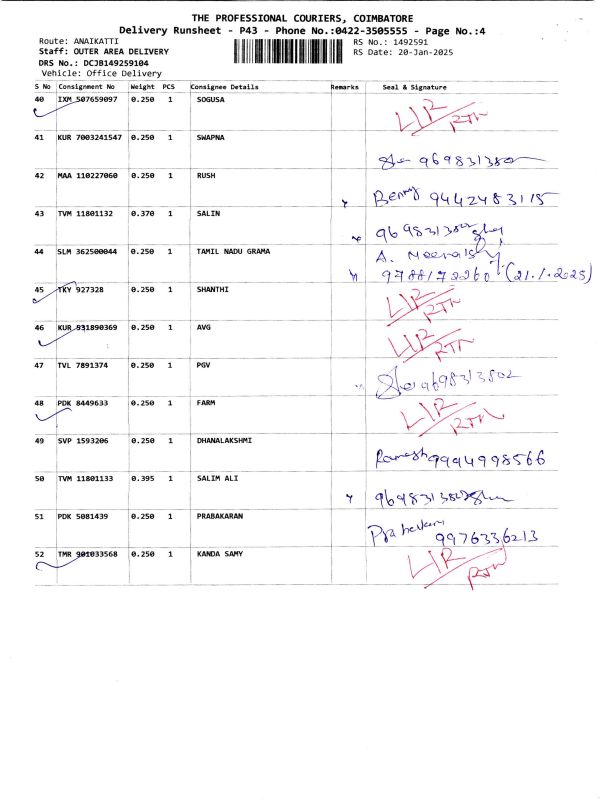 THE PROFESSIONAL COURIERS, COIMBATORE
Delivery Runsheet - P43 - Phone No.:0422-3505555 - Page No.:4
Route: ANAIKATTI RS No.: 1492591
Staff: OUTER AREA DELIVERY RS Date: 20-Jan-2025
DRS No.: DCJB149259104
Vehicle: Office Delivery
S No Consignment No Weight PCS Consignee Details Remarks Seal & Signature
40 IXM 507659097 0.250 1 SOGUSA L/R RTN
41 KUR 7003241547 0.250 1 SWAPNA
42 MAA 110227060 0.250 1 RUSH Benny 9442483115
43 TVM 11801132 0.370 1 SALIN
44 SLM 362500044 0.250 1 TAMIL NADU GRAMA A.
(21.1.2025)
45 TKY 927328 0.250 1 SHANTHI L/R RTN
46 KUR 931890369 0.250 1 AVG L/R RTN
47 TVL 7891374 0.250 1 PGV 9698313802
48 PDK 8449633 0.250 1 FARM L/R RTN
49 SVP 1593206 0.250 1 DHANALAKSHMI Ramesh 9994998566
50 TVM 11801133 0.395 1 SALIM ALI
51 PDK 5081439 0.250 1 PRABAKARAN 9976336213
52 TMR 901033568 0.250 1 KANDA SAMY L/R RTN